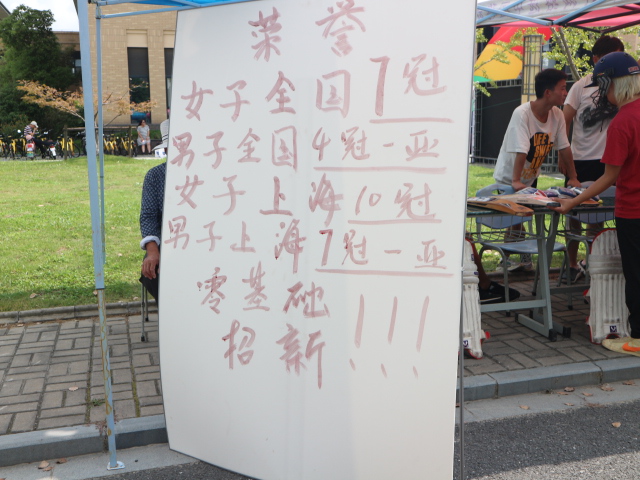 荣誉
女子全国7冠
男子全国4冠一亚
女子上海10冠
男子上海7冠一亚
零基础
招新!!!